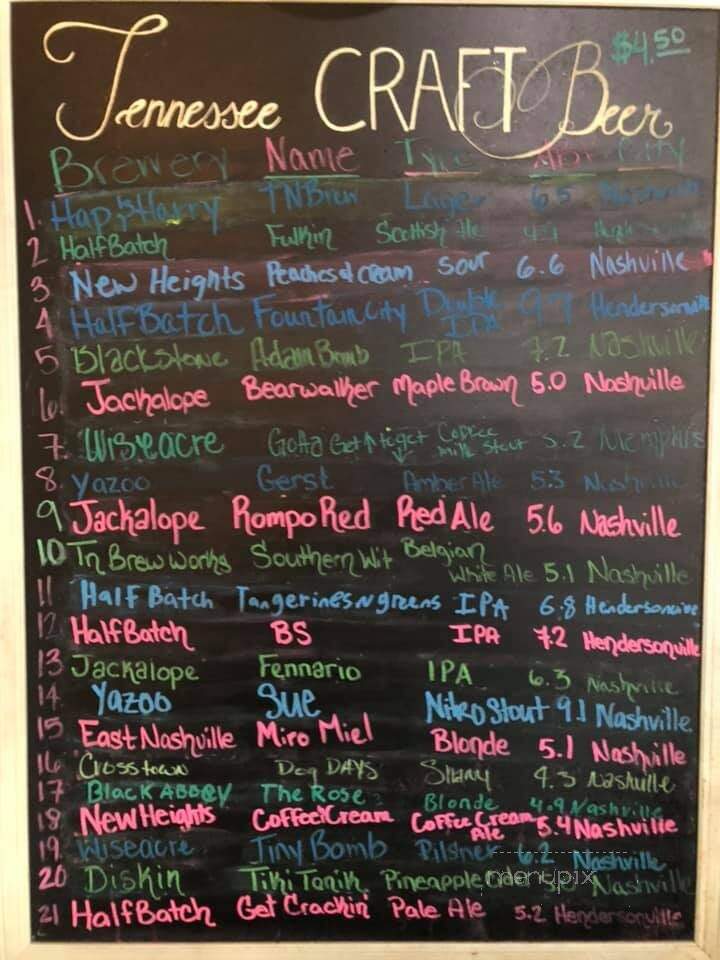 Tennessee CRAFT Beer $4.50
Brewery Name Type ABV City
1. Hap & Harry TN Brew Lager 6.5
2 HalfBatch Fulkin Scottish Ale
3 New Heights Peaches & cream Sour 6.6 Nashville
4 HalfBatch Fountain City Double IPA Hendersonville
5 Blackstone Adam Bomb IPA 7.2 Nashville
6. Jackalope Bearwalker Maple Brown 5.0 Nashville
7. Wiseacre Gotta Get Up to get ↓ Coffee milk Stout 5.2 Memphis
8. Yazoo Gerst Amber Ale 5.3 Nashville
9 Jackalope Rompo Red Red Ale 5.6 Nashville
10 Tn Brew Works Southern Wit Belgian White Ale 5.1 Nashville
11 Half Batch Tangerines n greens IPA 6.8 Hendersonville
12 HalfBatch BS IPA 7.2 Hendersonville
13 Jackalope Fennario IPA 6.3 Nashville
14 Yazoo Sue Nitro Stout 9.1 Nashville
15 East Nashville Miro Miel Blonde 5.1 Nashville
16 Crosstown Dog DAYS 4.3 Nashville
17 BLACK ABBEY The Rose Blonde 4.9 Nashville
18 New Heights Coffee & Cream Coffee Cream Ale 5.4 Nashville
19 Wiseacre Tiny Bomb Pilsner 6.2 Nashville
20 Diskin Tiki Tonik Pineapple Nashville
21 HalfBatch Get Crackin' Pale Ale 5.2 Hendersonville
menupix